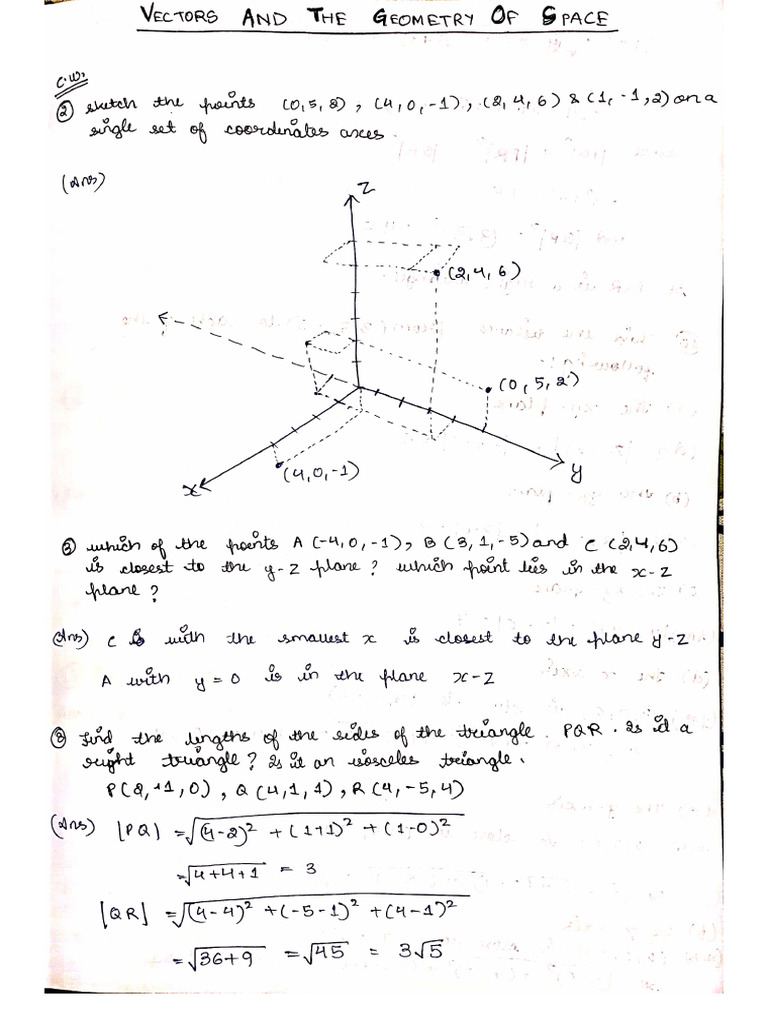 VECTORS AND THE GEOMETRY OF SPACE
C.W:
② sketch the points (0,5,2), (4,0,-1), (2,4,6) & (1,-1,2) on a
single set of coordinates axes.
(Ans)
Z
(2,4,6)
(0,5,2)
(4,0,-1)
x
y
③ which of the points A (-4,0,-1), B (3,1,-5) and C (2,4,6)
is closest to the y-z plane? which point lies in the x-z
plane?
(Ans) C is with the smallest x is closest to the plane y-z
A with y = 0 is in the plane x-z
⑧ Find the lengths of the sides of the triangle PQR. Is it a
right triangle? Is it an isosceles triangle.
P(2,-1,0), Q(4,1,1), R(4,-5,4)
(Ans) |PQ| = √(4-2)² + (1+1)² + (1-0)²
= √4+4+1 = 3
|QR| = √(4-4)² + (-5-1)² + (4-1)²
= √36+9 = √45 = 3√5